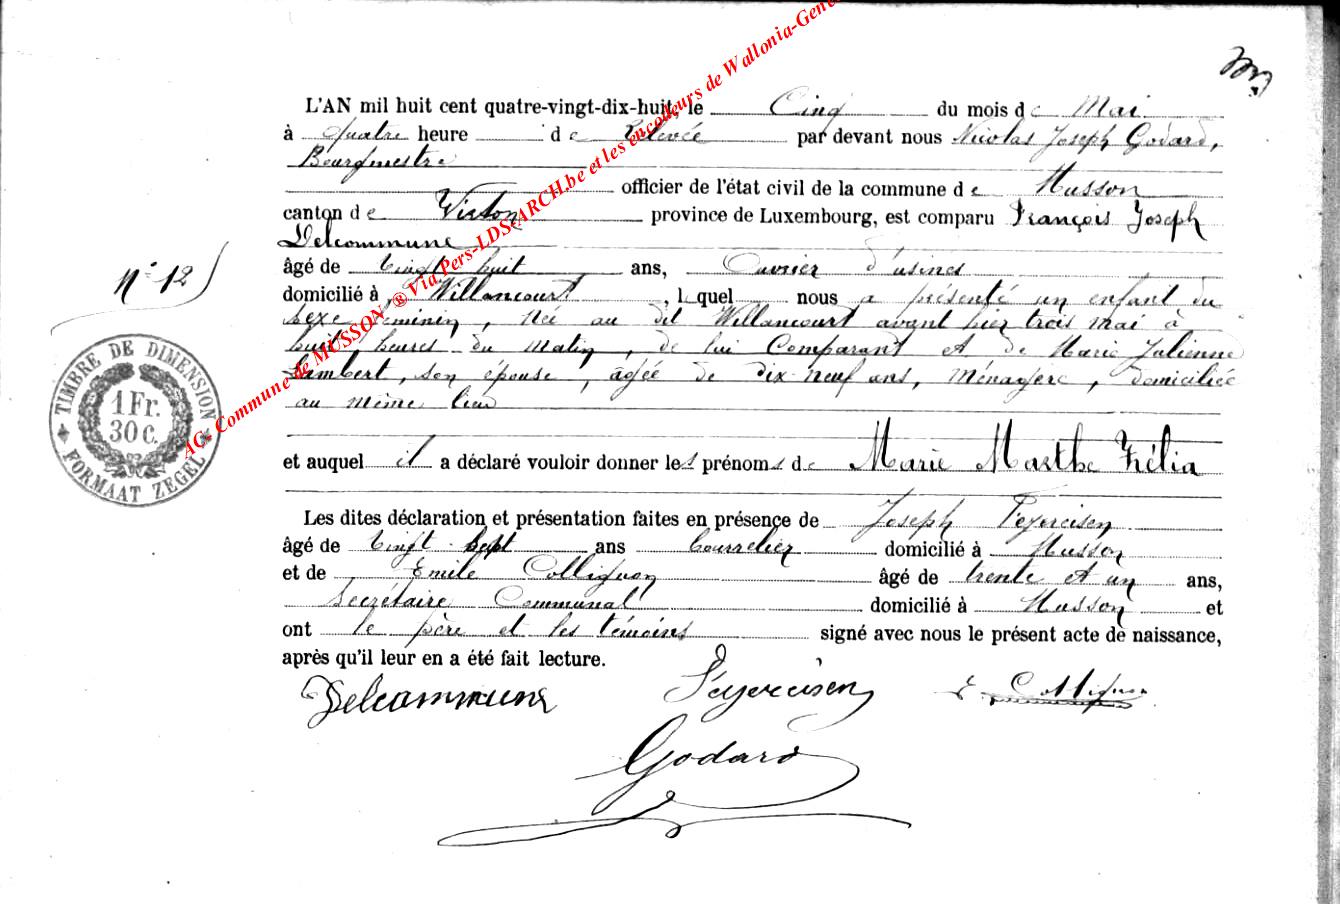 L'AN mil huit cent quatre-vingt-dix-huit, le Cinq du mois de Mai
à quatre heure de Relevée par devant nous Nicolas Joseph Godard,
Bourgmestre
officier de l'état civil de la commune de Musson
canton de Virton province de Luxembourg, est comparu François Joseph
Delcommune
âgé de vingt huit ans, Ouvrier d'usines
domicilié à Willancourt, lequel nous a présenté un enfant du
sexe féminin, née au dit Willancourt avant hier trois mai à
huit heures du matin, de lui Comparant et de Marie Julienne
Lambert, son épouse, agée de dix-neuf ans, Ménagère, domiciliée
au même lieu
N° 12
TIMBRE DE DIMENSION
1 Fr.
30 C.
FORMAAT ZEGEL
et auquel il a déclaré vouloir donner les prénoms de Marie Marthe Zélia
Les dites déclaration et présentation faites en présence de Joseph
âgé de vingt sept ans bourrelier domicilié à Musson
et de Emile Collignon âgé de trente et un ans,
Secrétaire Communal domicilié à Musson et
ont le père et les témoins signé avec nous le présent acte de naissance,
après qu'il leur en a été fait lecture.
Delcommune E. Collignon
Godard
AC. Commune de MUSSON ® Via Pers-LDS-ARCH.be et les encodeurs de Wallonia-Gene